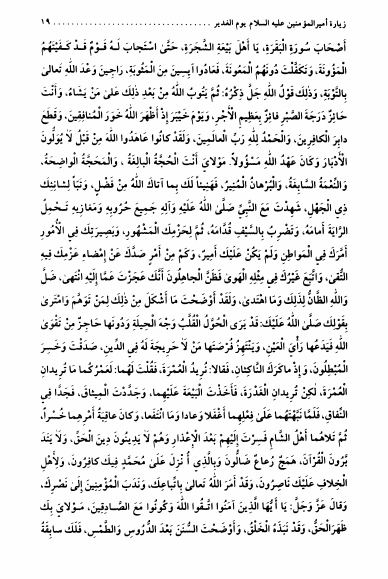 زيارة أميرالمؤمنين عليه السلام يوم الغدير ........................................ ١٩
أَصْحَابَ سُورَةِ الْبَقَرَةِ، يَا أَهْلَ بَيْعَةِ الشَّجَرَةِ، حَتَّىٰ اسْتَجَابَ لَهُ قَوْمٌ قَدْ كَفَيْتَهُمُ
الْمَؤُونَةَ، وَتَكَفَّلْتَ دُونَهُمُ الْمَعُونَةَ، فَعَادُوا آيِسِينَ مِنَ الْمَثُوبَةِ، رَاجِينَ وَعْدَ اللَّهِ تَعَالىٰ
بِالتَّوْبَةِ، وَذٰلِكَ قَوْلُ اللَّهِ جَلَّ ذِكْرُهُ: ثُمَّ يَتُوبُ اللَّهُ مِنْ بَعْدِ ذٰلِكَ عَلَىٰ مَنْ يَشَاءُ، وَأَنْتَ
حَائِزٌ دَرَجَةَ الصَّبْرِ فَائِزٌ بِعَظِيمِ الْأَجْرِ، وَيَوْمَ خَيْبَرَ إِذْ أَظْهَرَ اللَّهُ خَوَرَ الْمُنَافِقِينَ، وَقَطَعَ
دَابِرَ الْكَافِرِينَ، وَالْحَمْدُ لِلَّهِ رَبِّ الْعَالَمِينَ، وَلَقَدْ كَانُوا عَاهَدُوا اللَّهَ مِنْ قَبْلُ لَا يُوَلُّونَ
الْأَدْبَارَ وَكَانَ عَهْدُ اللَّهِ مَسْؤُولاً. مَوْلَايَ أَنْتَ الْحُجَّةُ الْبَالِغَةُ ، وَالْمَحَجَّةُ الْوَاضِحَةُ،
وَالنِّعْمَةُ السَّابِغَةُ، وَالْبُرْهَانُ الْمُنِيرُ، فَهَنِيئاً لَكَ بِمَا آتَاكَ اللَّهُ مِنْ فَضْلٍ، وَتَبّاً لِشَانِئِكَ
ذِي الْجَهْلِ، شَهِدْتَ مَعَ النَّبِيِّ صَلَّى اللَّهُ عَلَيْهِ وَآلِهِ جَمِيعَ حُرُوبِهِ وَمَغَازِيهِ تَحْمِلُ
الرَّايَةَ أَمَامَهُ، وَتَضْرِبُ بِالسَّيْفِ قُدَّامَهُ، ثُمَّ لِحَزْمِكَ الْمَشْهُورِ، وَبَصِيرَتِكَ فِي الْأُمُورِ
أَمَّرَكَ فِي الْمَوَاطِنِ وَلَمْ يَكُنْ عَلَيْكَ أَمِيرٌ، وَكَمْ مِنْ أَمْرٍ صَدَّكَ عَنْ إِمْضَاءِ عَزْمِكَ فِيهِ
التُّقىٰ، وَاتَّبَعَ غَيْرُكَ فِي مِثْلِهِ الْهَوىٰ، فَظَنَّ الْجَاهِلُونَ أَنَّكَ عَجَزْتَ عَمَّا إِلَيْهِ انْتَهىٰ، ضَلَّ
وَاللَّهِ الظَّانُّ لِذٰلِكَ وَمَا اهْتَدىٰ، وَلَقَدْ أَوْضَحْتَ مَا أَشْكَلَ مِنْ ذٰلِكَ لِمَنْ تَوَهَّمَ وَامْتَرىٰ
بِقَوْلِكَ صَلَّى اللَّهُ عَلَيْكَ: قَدْ يَرَى الْحُوَّلُ الْقُلَّبُ وَجْهَ الْحِيلَةِ وَدُونَهَا حَاجِزٌ مِنْ تَقْوَى
اللَّهِ فَيَدَعُهَا رَأْيَ الْعَيْنِ، وَيَنْتَهِزُ فُرْصَتَهَا مَنْ لَا حَرِيجَةَ لَهُ فِي الدِّينِ، صَدَقْتَ وَخَسِرَ
الْمُبْطِلُونَ، وَإِذْ مَاكَرَكَ النَّاكِثَانِ، فَقَالَا: نُرِيدُ الْعُمْرَةَ، فَقُلْتَ لَهُمَا: لَعَمْرُكُمَا مَا تُرِيدَانِ
الْعُمْرَةَ، لٰكِنْ تُرِيدَانِ الْغَدْرَةَ، فَأَخَذْتَ الْبَيْعَةَ عَلَيْهِمَا، وَجَدَّدْتَ الْمِيثَاقَ، فَجَدَّا فِي
النِّفَاقِ، فَلَمَّا نَبَّهْتَهُمَا عَلَىٰ فِعْلِهِمَا أَغْفَلَا وَعَادا وَمَا انْتَفَعَا، وَكَانَ عَاقِبَةُ أَمْرِهِمَا خُسْراً،
ثُمَّ تَلَاهُمَا أَهْلُ الشَّامِ فَسِرْتَ إِلَيْهِمْ بَعْدَ الْإِعْذَارِ وَهُمْ لَا يَدِينُونَ دِينَ الْحَقِّ، وَلَا يَتَدَ
بَّرُونَ الْقُرْآنَ، هَمَجٌ رُعَاعٌ ضَالُّونَ وَبِالَّذِي أُ نْزِلَ عَلَىٰ مُحَمَّدٍ فِيكَ كَافِرُونَ، وَلِأَهْلِ
الْخِلَافِ عَلَيْكَ نَاصِرُونَ، وَقَدْ أَمَرَ اللَّهُ تَعَالىٰ بِاتِّبَاعِكَ، وَنَدَبَ الْمُؤْمِنِينَ إِلَىٰ نَصْرِكَ،
وَقَالَ عَزَّ وَجَلَّ: يَا أَيُّهَا الَّذِينَ آمَنُوا اتَّقُوا اللَّهَ وَكُونُوا مَعَ الصَّادِقِينَ، مَوْلَايَ بِكَ
ظَهَرَ الْحَقُّ، وَقَدْ نَبَذَهُ الْخَلْقُ، وَأَوْضَحْتَ السُّنَنَ بَعْدَ الدُّرُوسِ وَالطَّمْسِ، فَلَكَ سَابِقَةُ